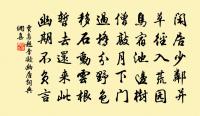 閑居少鄰并
草徑入荒園
鳥宿池邊樹
僧敲月下門
過橋分野色
移石動雲根
暫去還來此
幽期不負言
賈島題李凝幽居詞典
網